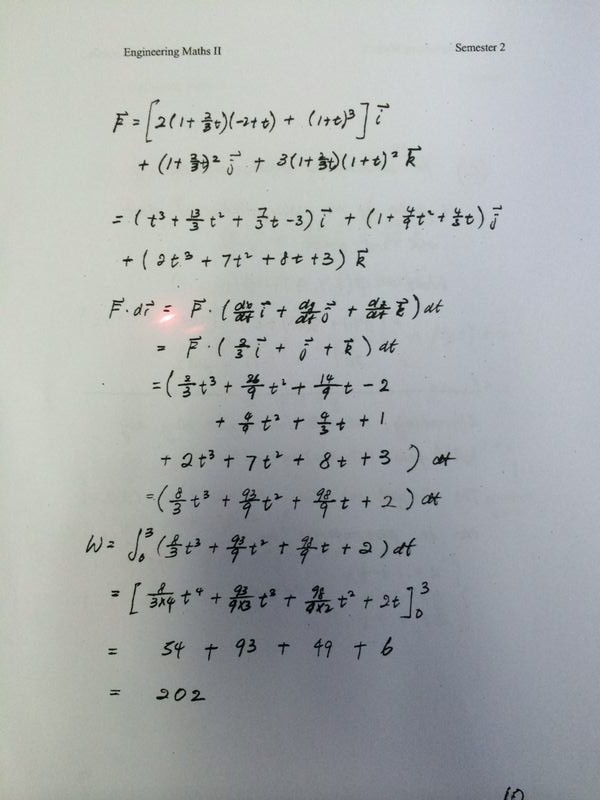 Engineering Maths II Semester 2
F⃗ = [2(1+⅔t)(-2+t) + (1+t)³] i⃗
+ (1+⅔t)² j⃗ + 3(1+⅔t)(1+t)² k⃗
= (t³ + 13/3 t² + 7/3 t - 3) i⃗ + (1 + 4/9 t² + 4/3 t) j⃗
+ (2t³ + 7t² + 8t + 3) k⃗
F⃗ · dr⃗ = F⃗ · (dx/dt i⃗ + dy/dt j⃗ + dz/dt k⃗) dt
= F⃗ · (⅔ i⃗ + j⃗ + k⃗) dt
= (⅔ t³ + 26/9 t² + 14/9 t - 2
+ 4/9 t² + 4/3 t + 1
+ 2t³ + 7t² + 8t + 3 ) dt
= (8/3 t³ + 93/9 t² + 98/9 t + 2) dt
W = ∫₀³ (8/3 t³ + 93/9 t² + 98/9 t + 2) dt
= [ 8/(3×4) t⁴ + 93/(9×3) t³ + 98/(9×2) t² + 2t ]₀³
= 54 + 93 + 49 + 6
= 202